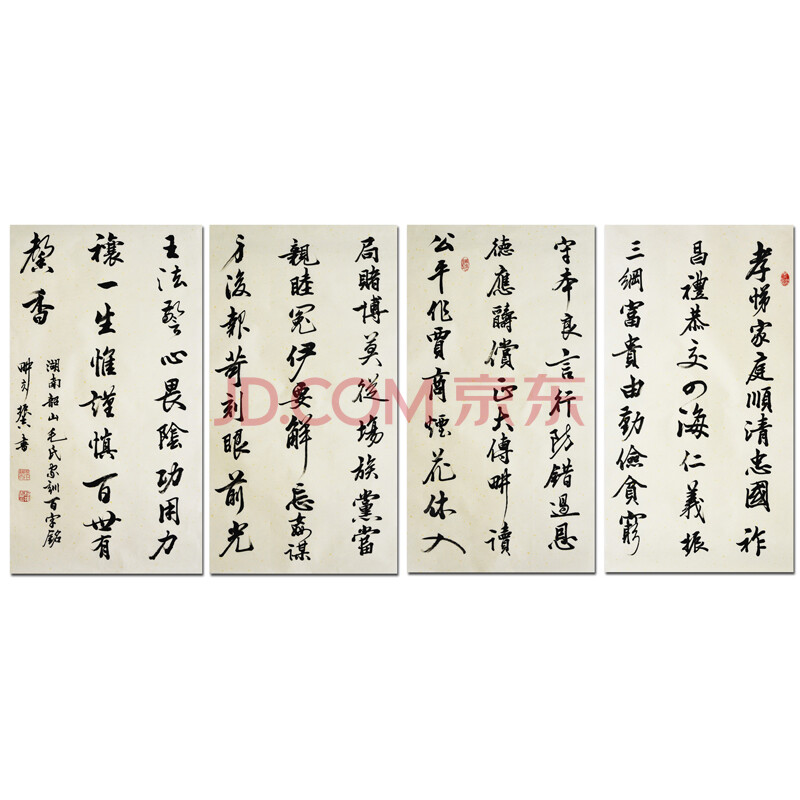 孝悌家庭順清忠國祚
昌禮恭交四海仁義振
三綱富貴由勤儉貧窮
守本良言行防錯過恩
德應酬償正大傳畊讀
公平作賈商煙花休入
局賭博莫從場族黨當
親睦冤伊要解忘姦謀
方後報苛刻眼前光
王法警心畏陰功用力
穰一生惟謹慎百世有
馨香
湖南韶山毛氏家訓百字銘
畊
書
JD.COM 京东